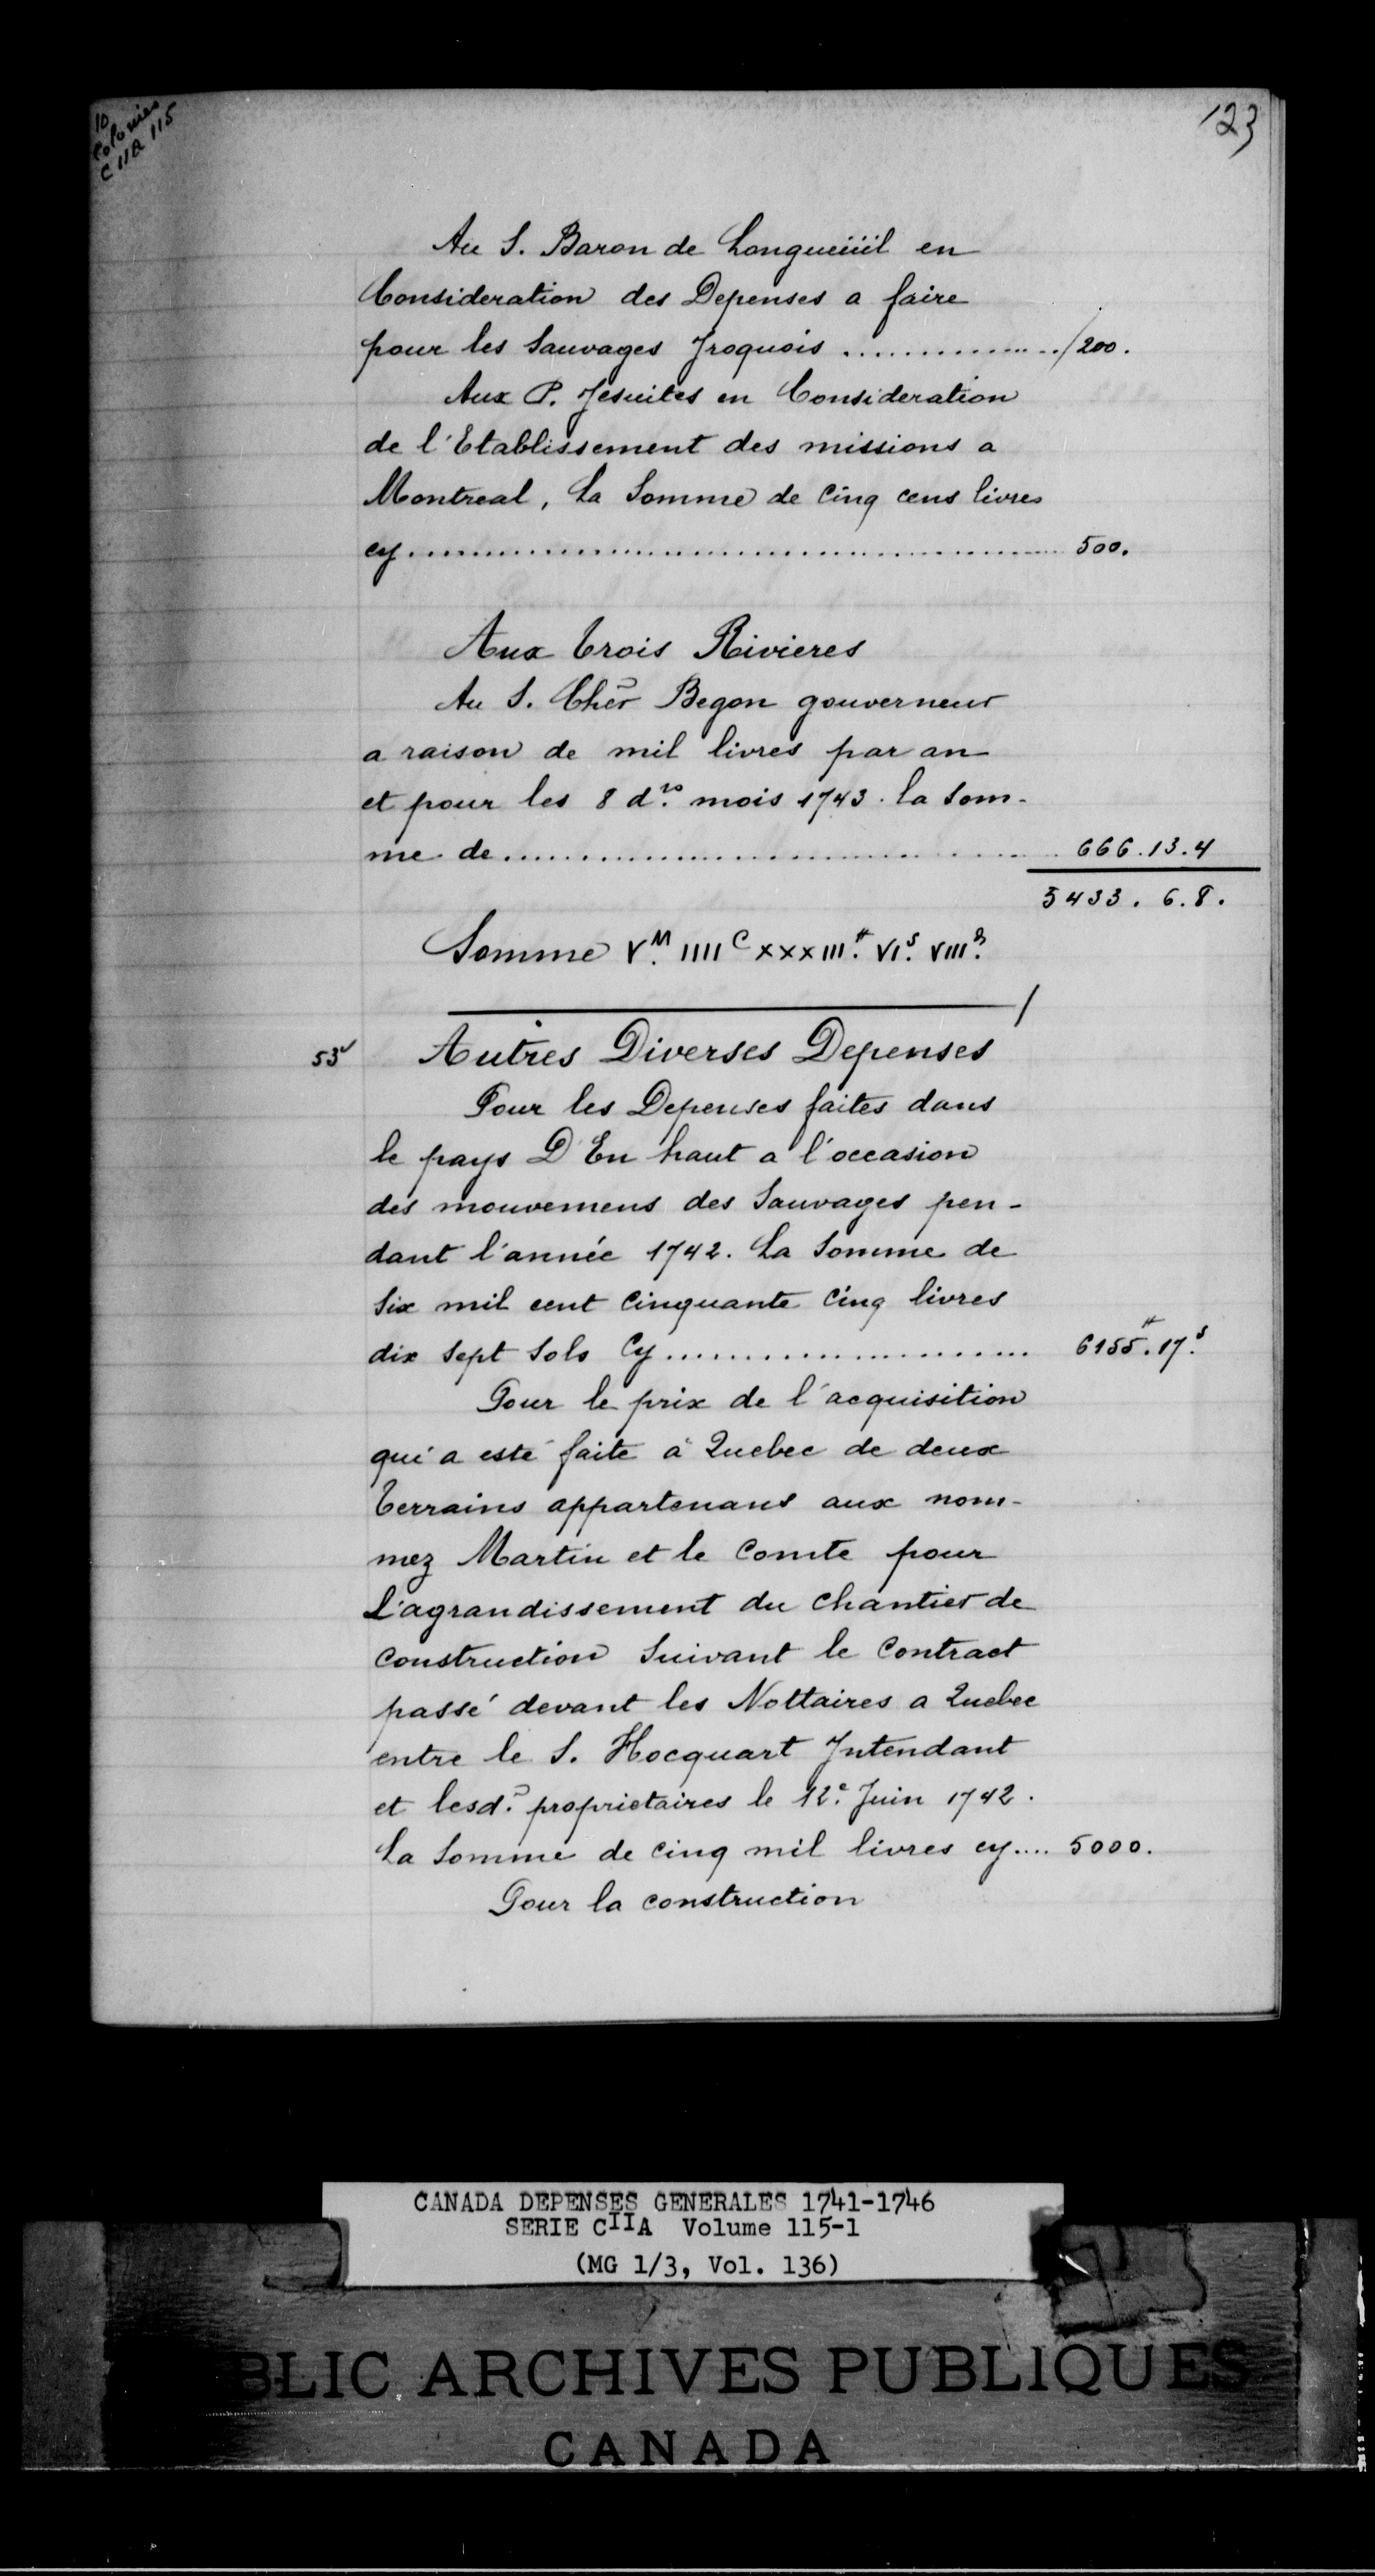 10
Colonies
C 11A 115
123
Au S. Baron de Longueüil en
Consideration des Depenses a faire
pour les Sauvages Iroquois ................ /200.
Aux P. Jesuites en Consideration
de l'Etablissement des missions a
Montreal, La Somme de Cinq cens livres
cy................................................ 500.
Aux trois Rivieres
Au S. Cher Begon gouverneur
a raison de mil livres par an
et pour les 8 d.rs mois 1743. la Som-
me de........................................ 666.13.4
5433. 6.8.
Somme V.M IIIIC XXXIII.# VI.S VIII.d
53v Autres Diverses Depenses
Pour les Depenses faites dans
le pays D'En haut a l'occasion
des mouvemens des Sauvages pen-
dant l'année 1742. La Somme de
Six mil cent Cinquante Cinq livres
dix Sept Sols Cy........................ 6155.# 17.s
Pour le prix de l'acquisition
qui a esté faite à Quebec de deux
terrains appartenans aux nom-
mez Martin et le Comte pour
L'agrandissement du Chantier de
Construction Suivant le Contract
passé devant les Nottaires a Quebec
entre le S. Hocquart Intendant
et lesd. proprietaires le 12.e Juin 1742.
La Somme de Cinq mil livres cy.... 5000.
Pour la construction
CANADA DEPENSES GENERALES 1741-1746
SERIE CIIA Volume 115-1
(MG 1/3, Vol. 136)
BLIC ARCHIVES PUBLIQUES
CANADA